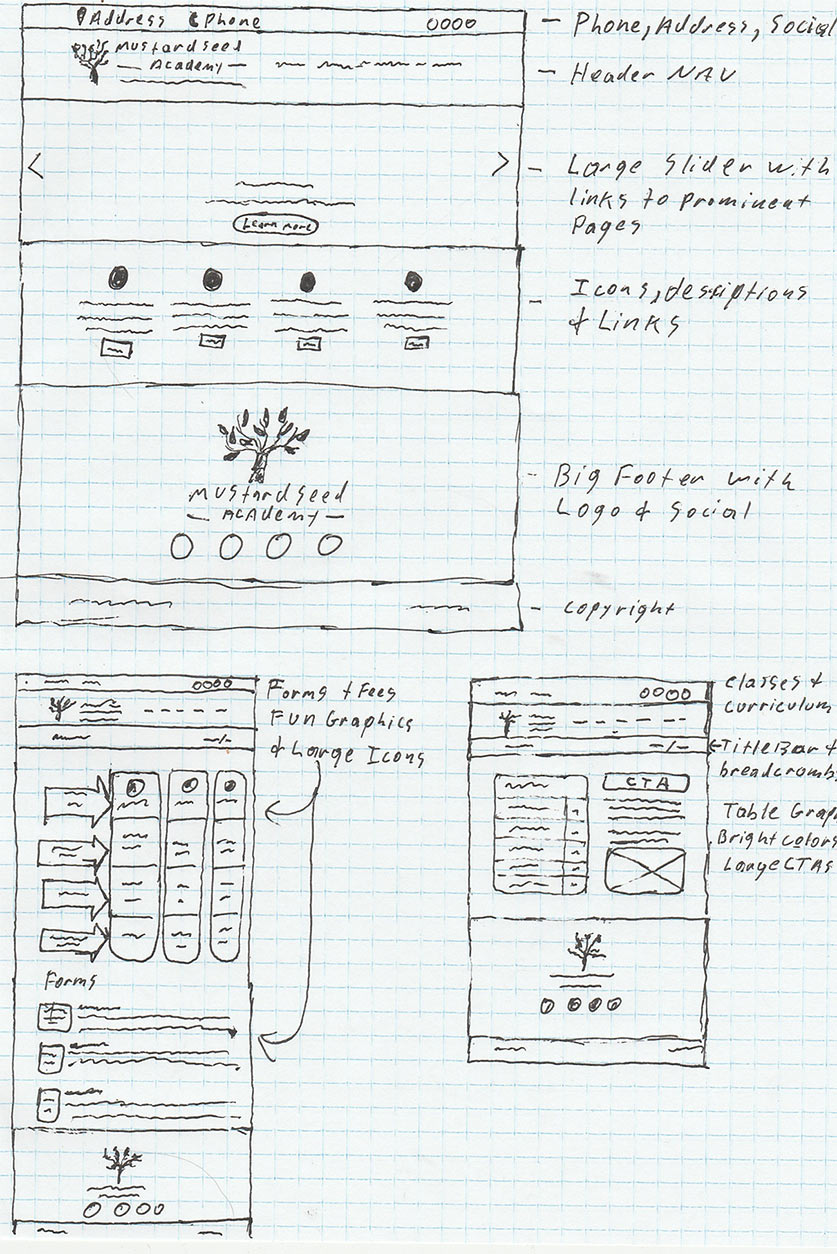 Address Phone
Phone, Address, Social
Mustard seed
Academy
Header NAV
Large Slider with
links to prominent
Pages
Learn more
Icons, desriptions
& Links
Mustard seed
Academy
Big Footer with
Logo & Social
copyright
Forms + Fees
Fun Graphics
& Large Icons
Forms
classes +
curriculum
Title Bar +
breadcrumbs
CTA
Table Grap
Bright colors
Large CTAs